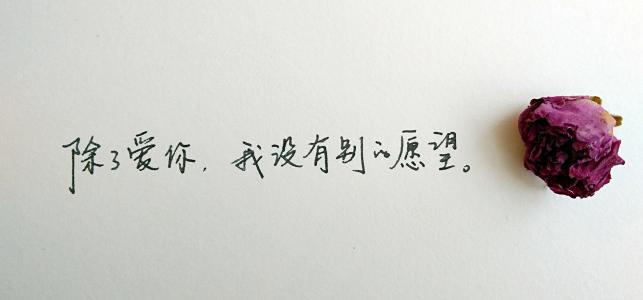 除了爱你，我没有别的愿望。